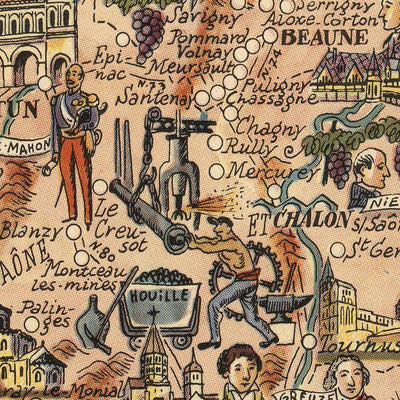 Serrigny
Savigny
Aloxe-Corton
Pommard
BEAUNE
Volnay
Epi-
nac
Meursault
N.73
N.74
Santenay
Puligny
Chassagne
UN
Chagny
E-MAHON
Rully
Mercurey
NIE
Le
Creu-
sot
ET CHALON
s/Saô
Blanzy
St Ger
AÔNE
N.80
Montceau
les-mines
HOUILLE
Palin-
ges
Tournus
ray-le-Monial
GREUZE